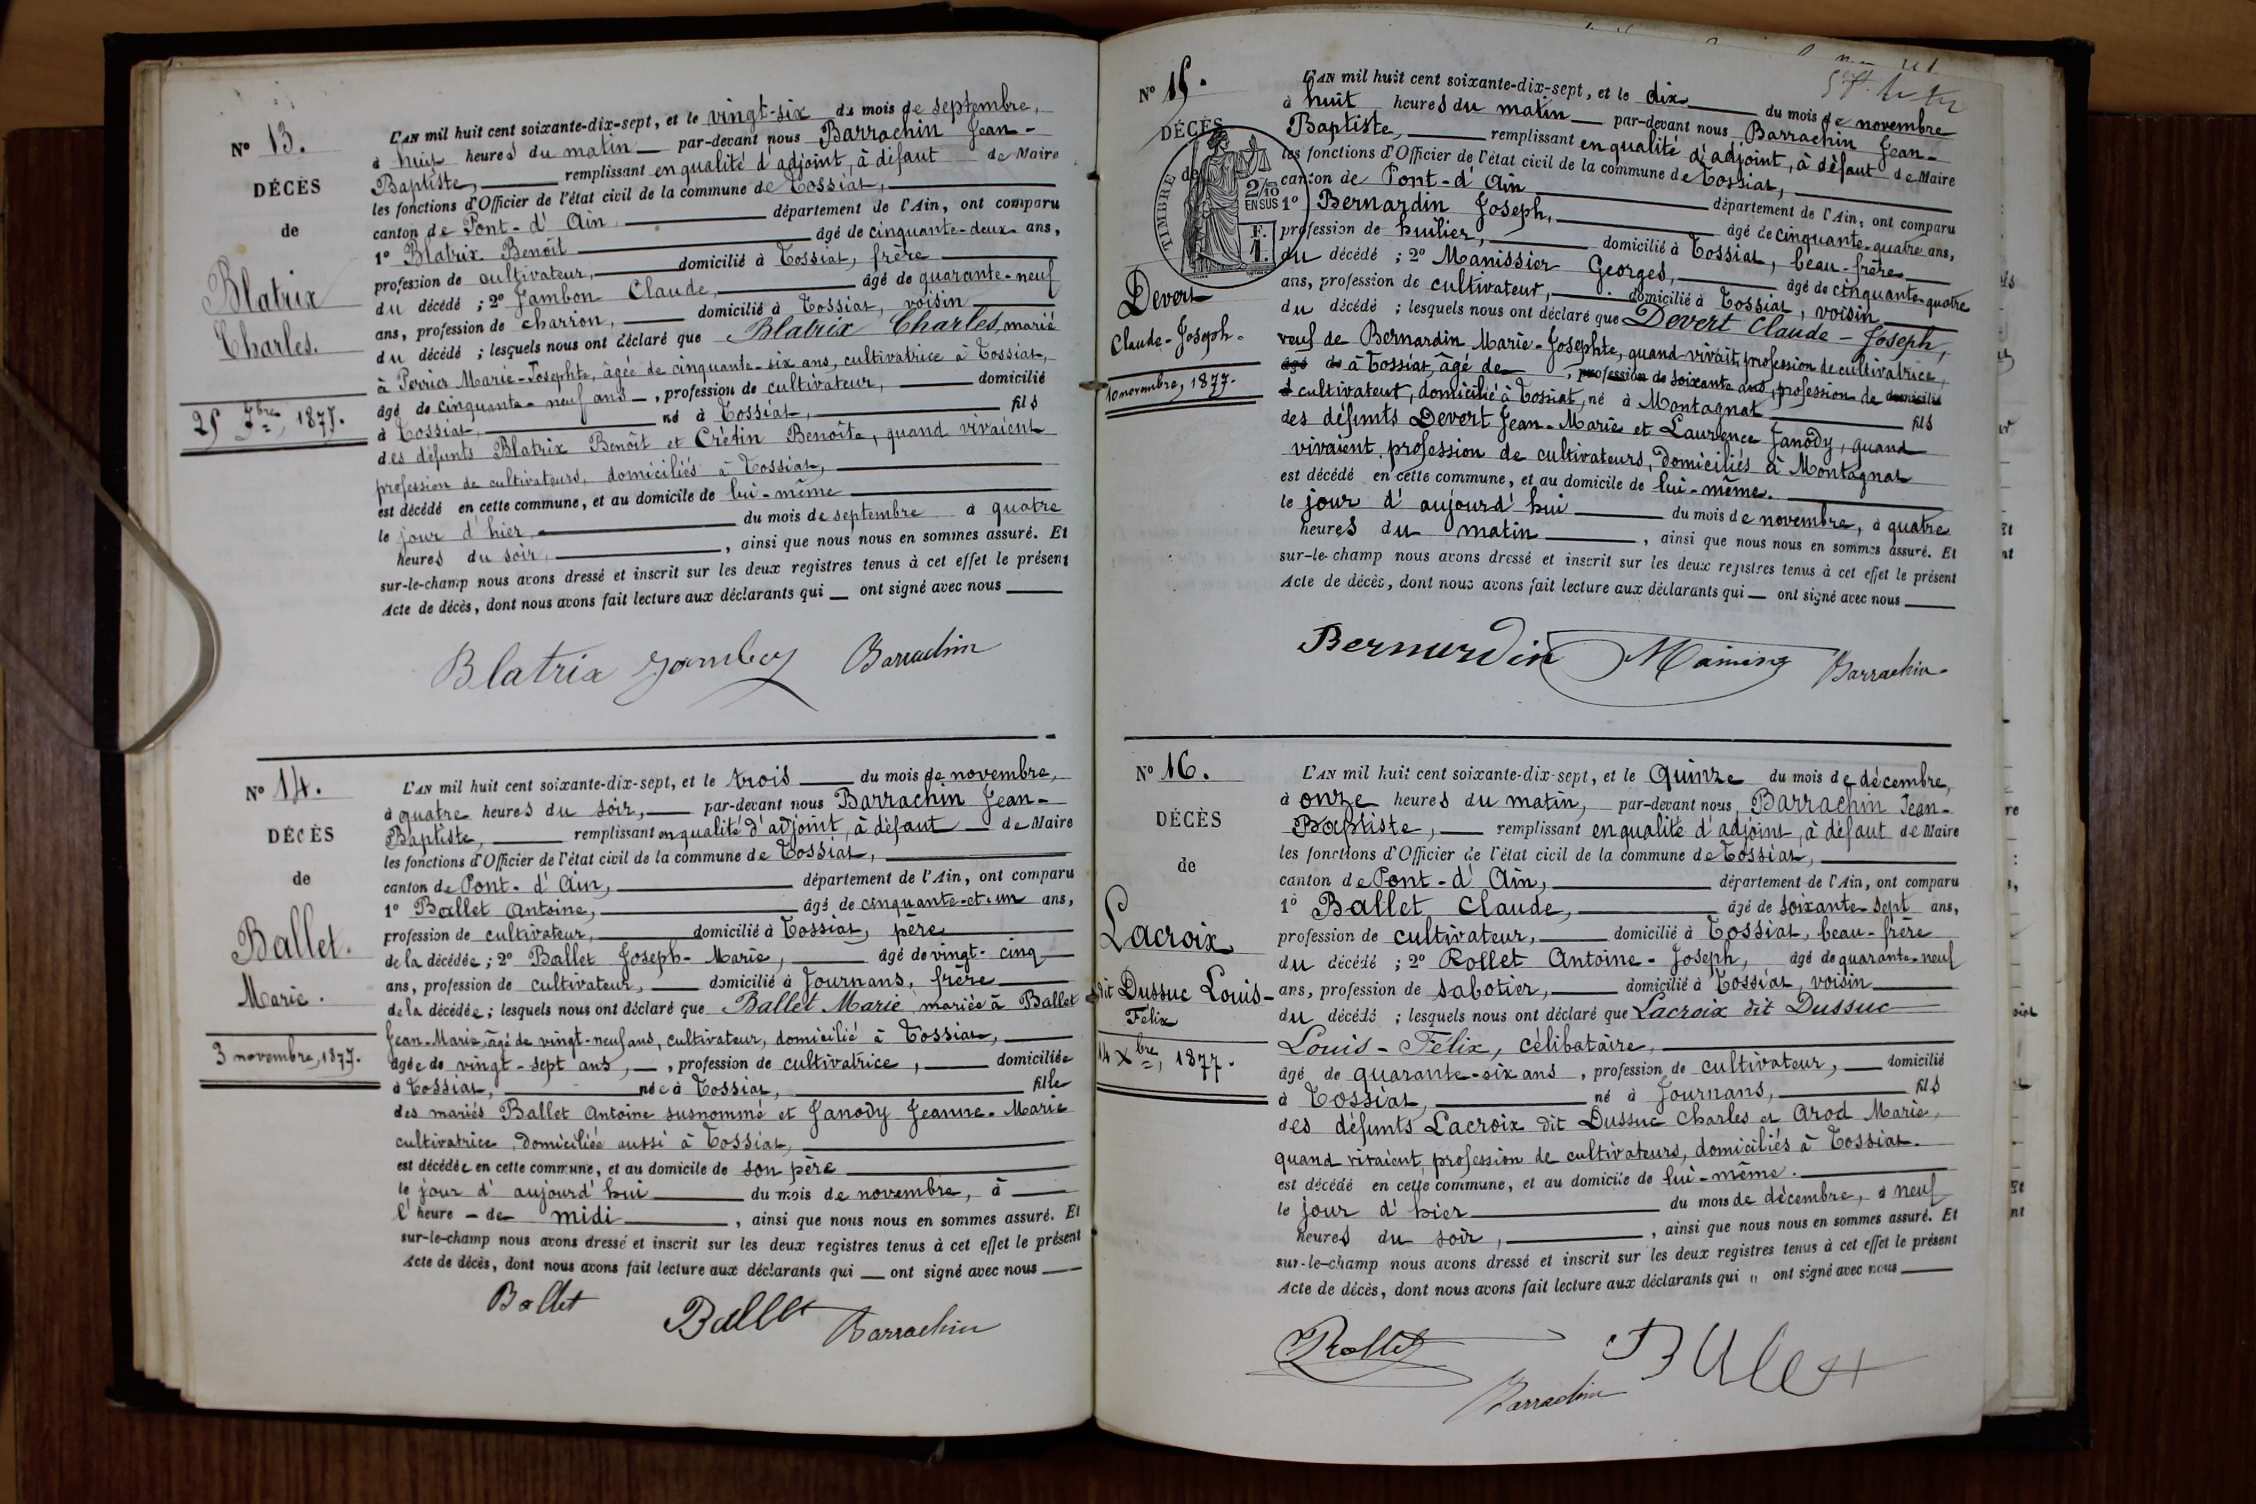 Nº 13.
DÉCÈS
de
Blatrix
Charles.
25 7bre, 1877.
L'AN mil huit cent soixante-dix-sept, et le vingt-six du mois de septembre,
à huit heures du matin par-devant nous Barrachin Jean-
Baptiste, remplissant en qualité d'adjoint, à défaut de Maire
les fonctions d'Officier de l'état civil de la commune de Tossiat,
canton de Pont-d'Ain département de l'Ain, ont comparu
1º Blatrix Benoît âgé de cinquante-deux ans,
profession de cultivateur, domicilié à Tossiat, frère
du décédé ; 2º Jambon Claude, âgé de quarante-neuf
ans, profession de charron, domicilié à Tossiat, voisin
du décédé ; lesquels nous ont déclaré que Blatrix Charles, marié
à Perrier Marie-Josephte, âgée de cinquante-six ans, cultivatrice à Tossiat,
âgé de cinquante-neuf ans, profession de cultivateur, domicilié
à Tossiat, né à Tossiat, fils
des défunts Blatrix Benoît et Crétin Benoîte, quand vivaient
profession de cultivateurs, domiciliés à Tossiat,
est décédé en cette commune, et au domicile de lui-même
le jour d'hier, du mois de septembre à quatre
heures du soir, , ainsi que nous nous en sommes assuré. Et
sur-le-champ nous avons dressé et inscrit sur les deux registres tenus à cet effet le présent
Acte de décès, dont nous avons fait lecture aux déclarants qui ont signé avec nous
Blatrix Barrachin
Nº 14.
DÉCÈS
de
Ballet.
Marie.
3 novembre, 1877.
L'AN mil huit cent soixante-dix-sept, et le trois du mois de novembre,
à quatre heures du soir, par-devant nous Barrachin Jean-
Baptiste, remplissant en qualité d'adjoint, à défaut de Maire
les fonctions d'Officier de l'état civil de la commune de Tossiat,
canton de Pont-d'Ain, département de l'Ain, ont comparu
1º Ballet Antoine, âgé de cinquante-et-un ans,
profession de cultivateur, domicilié à Tossiat, père
de la décédée ; 2º Ballet Joseph-Marie, âgé de vingt-cinq
ans, profession de cultivateur, domicilié à Journans, frère
de la décédée ; lesquels nous ont déclaré que Ballet Marie, mariée à Ballet
Jean-Marie, âgé de vingt-neuf ans, cultivateur, domicilié à Tossiat,
âgée de vingt-sept ans, , profession de cultivatrice, domiciliée
à Tossiat, née à Tossiat, fille
des mariés Ballet Antoine susnommé et Janody Jeanne-Marie
cultivatrice, domiciliée aussi à Tossiat,
est décédée en cette commune, et au domicile de son père
le jour d'aujourd'hui du mois de novembre, à
l'heure de midi , ainsi que nous nous en sommes assuré. Et
sur-le-champ nous avons dressé et inscrit sur les deux registres tenus à cet effet le présent
Acte de décès, dont nous avons fait lecture aux déclarants qui ont signé avec nous
Ballet Ballet Barrachin
Nº 15.
DÉCÈS
de
TIMBRE
2/10
EN SUS
F.
1.
Devert
Claude-Joseph.
10 novembre, 1877.
L'AN mil huit cent soixante-dix-sept, et le dix du mois de novembre
à huit heures du matin par-devant nous Barrachin Jean-
Baptiste, remplissant en qualité d'adjoint, à défaut de Maire
les fonctions d'Officier de l'état civil de la commune de Tossiat,
canton de Pont-d'Ain département de l'Ain, ont comparu
1º Bernardin Joseph, âgé de cinquante-quatre ans,
profession de huilier, domicilié à Tossiat, beau-frère
du décédé ; 2º Manissier Georges, âgé de cinquante-quatre
ans, profession de cultivateur, domicilié à Tossiat, voisin
du décédé ; lesquels nous ont déclaré que Devert Claude-Joseph,
veuf de Bernardin Marie-Josephte, quand vivait, profession de cultivatrice,
âgé de à Tossiat, âgé de , profession de soixante ans, profession de domicilié
à cultivateur, domicilié à Tossiat, né à Montagnat fils
des défunts Devert Jean-Marie et Laurence Janôdy, quand
vivaient, profession de cultivateurs, domiciliés à Montagnat
est décédé en cette commune, et au domicile de lui-même.
le jour d'aujourd'hui du mois de novembre, à quatre
heures du matin , ainsi que nous nous en sommes assuré. Et
sur-le-champ nous avons dressé et inscrit sur les deux registres tenus à cet effet le présent
Acte de décès, dont nous avons fait lecture aux déclarants qui ont signé avec nous
Bernardin Barrachin
Nº 16.
DÉCÈS
de
Lacroix
dit Dussuc Louis-
Félix
14 Xbre, 1877.
L'AN mil huit cent soixante-dix-sept, et le quinze du mois de décembre,
à onze heures du matin, par-devant nous, Barrachin Jean-
Baptiste, remplissant en qualité d'adjoint, à défaut de Maire
les fonctions d'Officier de l'état civil de la commune de Tossiat,
canton de Pont-d'Ain, département de l'Ain, ont comparu
1º Ballet Claude, âgé de soixante-sept ans,
profession de cultivateur, domicilié à Tossiat, beau-frère
du décédé ; 2º Rollet Antoine-Joseph, âgé de quarante-neuf
ans, profession de sabotier, domicilié à Tossiat, voisin
du décédé ; lesquels nous ont déclaré que Lacroix dit Dussuc
Louis-Félix, célibataire,
âgé de quarante-six ans, profession de cultivateur, domicilié
à Tossiat, né à Journans, fils
des défunts Lacroix dit Dussuc Charles et Arod Marie,
quand vivaient, profession de cultivateurs, domiciliés à Tossiat.
est décédé en cette commune, et au domicile de lui-même.
le jour d'hier du mois de décembre, à neuf
heures du soir, , ainsi que nous nous en sommes assuré. Et
sur-le-champ nous avons dressé et inscrit sur les deux registres tenus à cet effet le présent
Acte de décès, dont nous avons fait lecture aux déclarants qui " ont signé avec nous
Rollet Balet
Barrachin